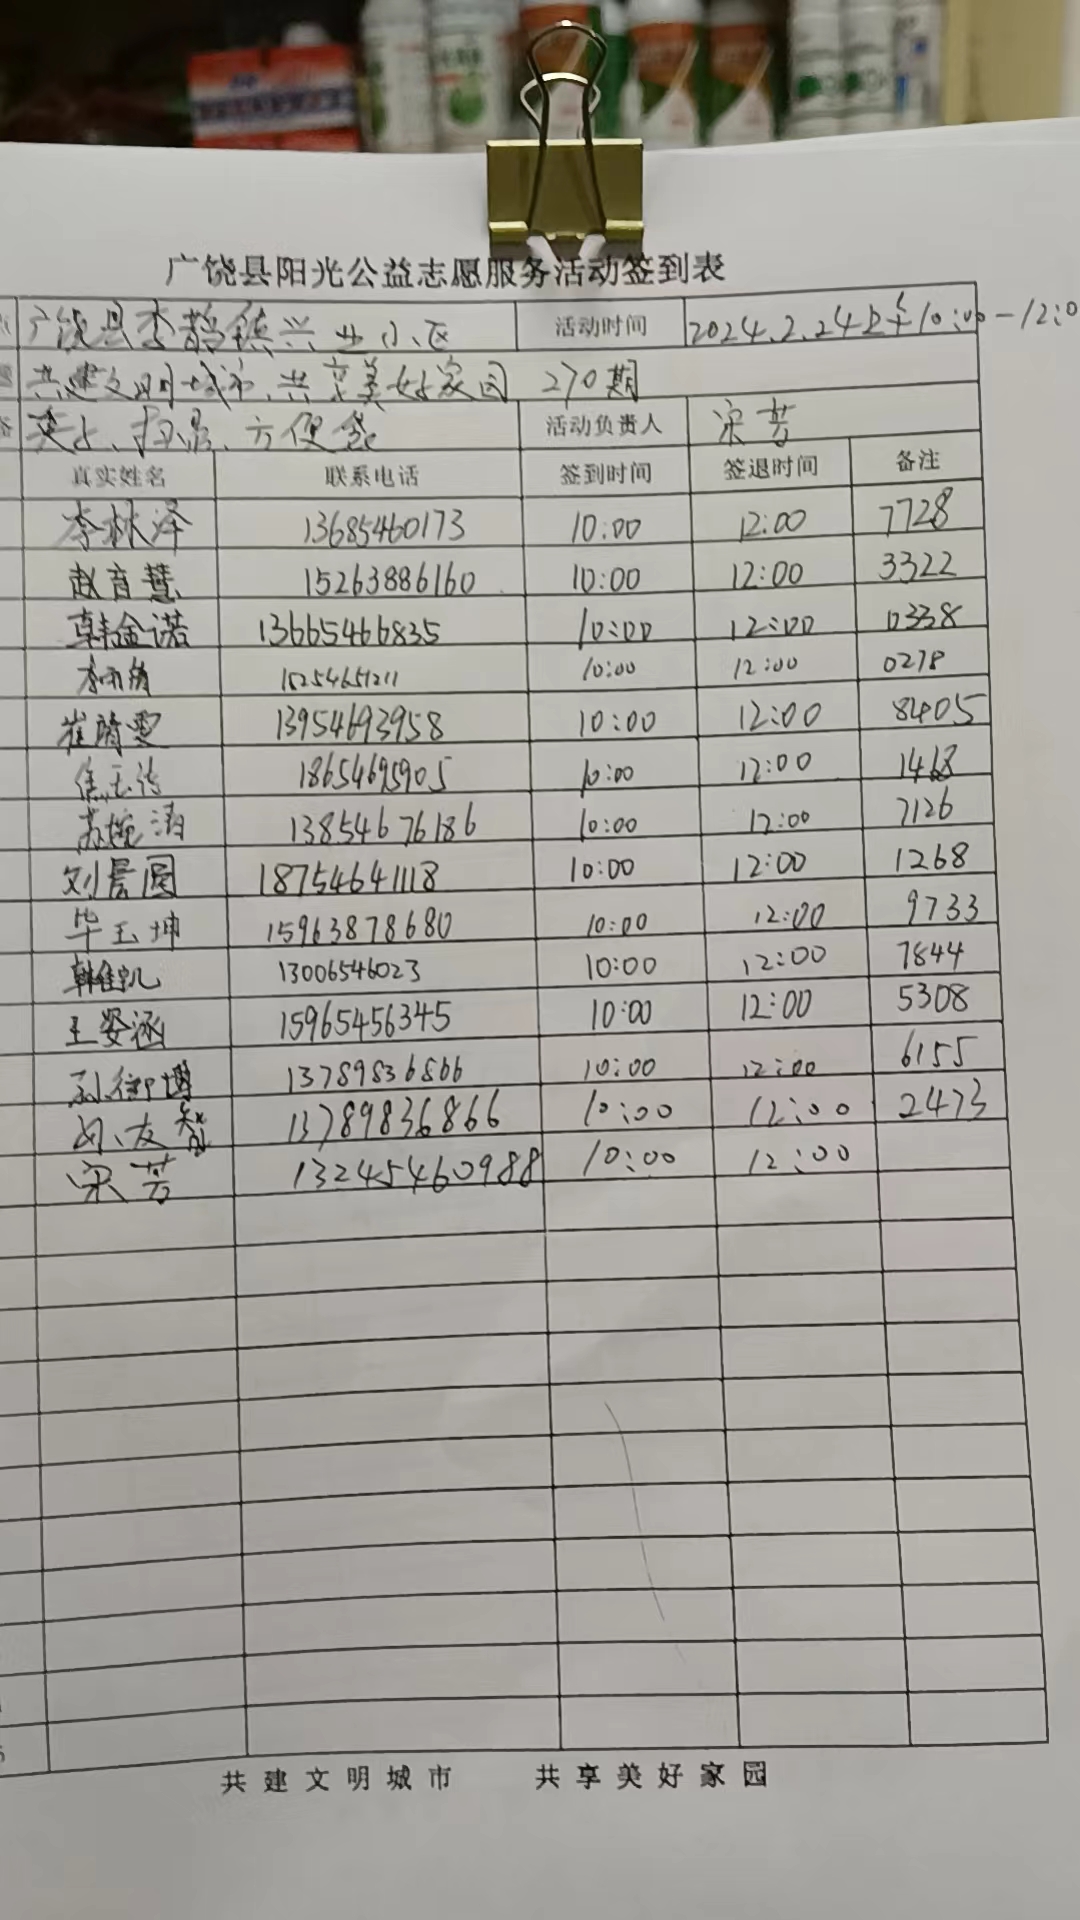 广饶县阳光公益志愿服务活动签到表
广饶县李鹊镇兴业小区 活动时间 2024.2.24上午10:00-12:0
共建文明城市、共享美好家园 270期
夹子、扫帚、方便袋 活动负责人 宋芳
真实姓名 联系电话 签到时间 签退时间 备注
李林泽 13685460173 10:00 12:00 7728
赵音慧 15263886160 10:00 12:00 3322
韩金诺 13665466835 10:00 12:00 0338
15254651211 10:00 12:00 0278
崔靖雯 13954693958 10:00 12:00 8405
焦玉洁 18654695905 10:00 12:00 1468
苏婉涛 13854676186 10:00 12:00 7126
刘景圆 18754641118 10:00 12:00 1268
毕玉坤 15963878680 10:00 12:00 9733
韩佳凯 13006546023 10:00 12:00 7844
王姿涵 15965456345 10:00 12:00 5308
孙御博 13789836866 10:00 12:00 6155
友智 13789836866 10:00 12:00 2473
宋芳 13245460988 10:00 12:00
共建文明城市 共享美好家园